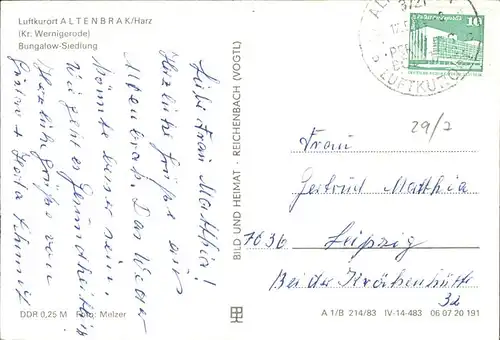 Luftkurort ALTENBRAK/Harz
(Kr. Wernigerode)
Bungalow-Siedlung
Liebe Frau Matthia!
Herzliche Grüße aus
Altenbrak. Das Wetter
könnte besser sein.
Wie geht es Gesundheitlich
Herzliche Grüße von
+ Herta
DDR 0,25 M Foto: Melzer
BILD UND HEIMAT · REICHENBACH (VOGTL)
3721
LUFTKURORT
10
29/7
Frau
Gertrud Matthia
7036 Leipzig
Bei der Krähenhütte
32
A 1/B 214/83 IV-14-483 06 07 20 191